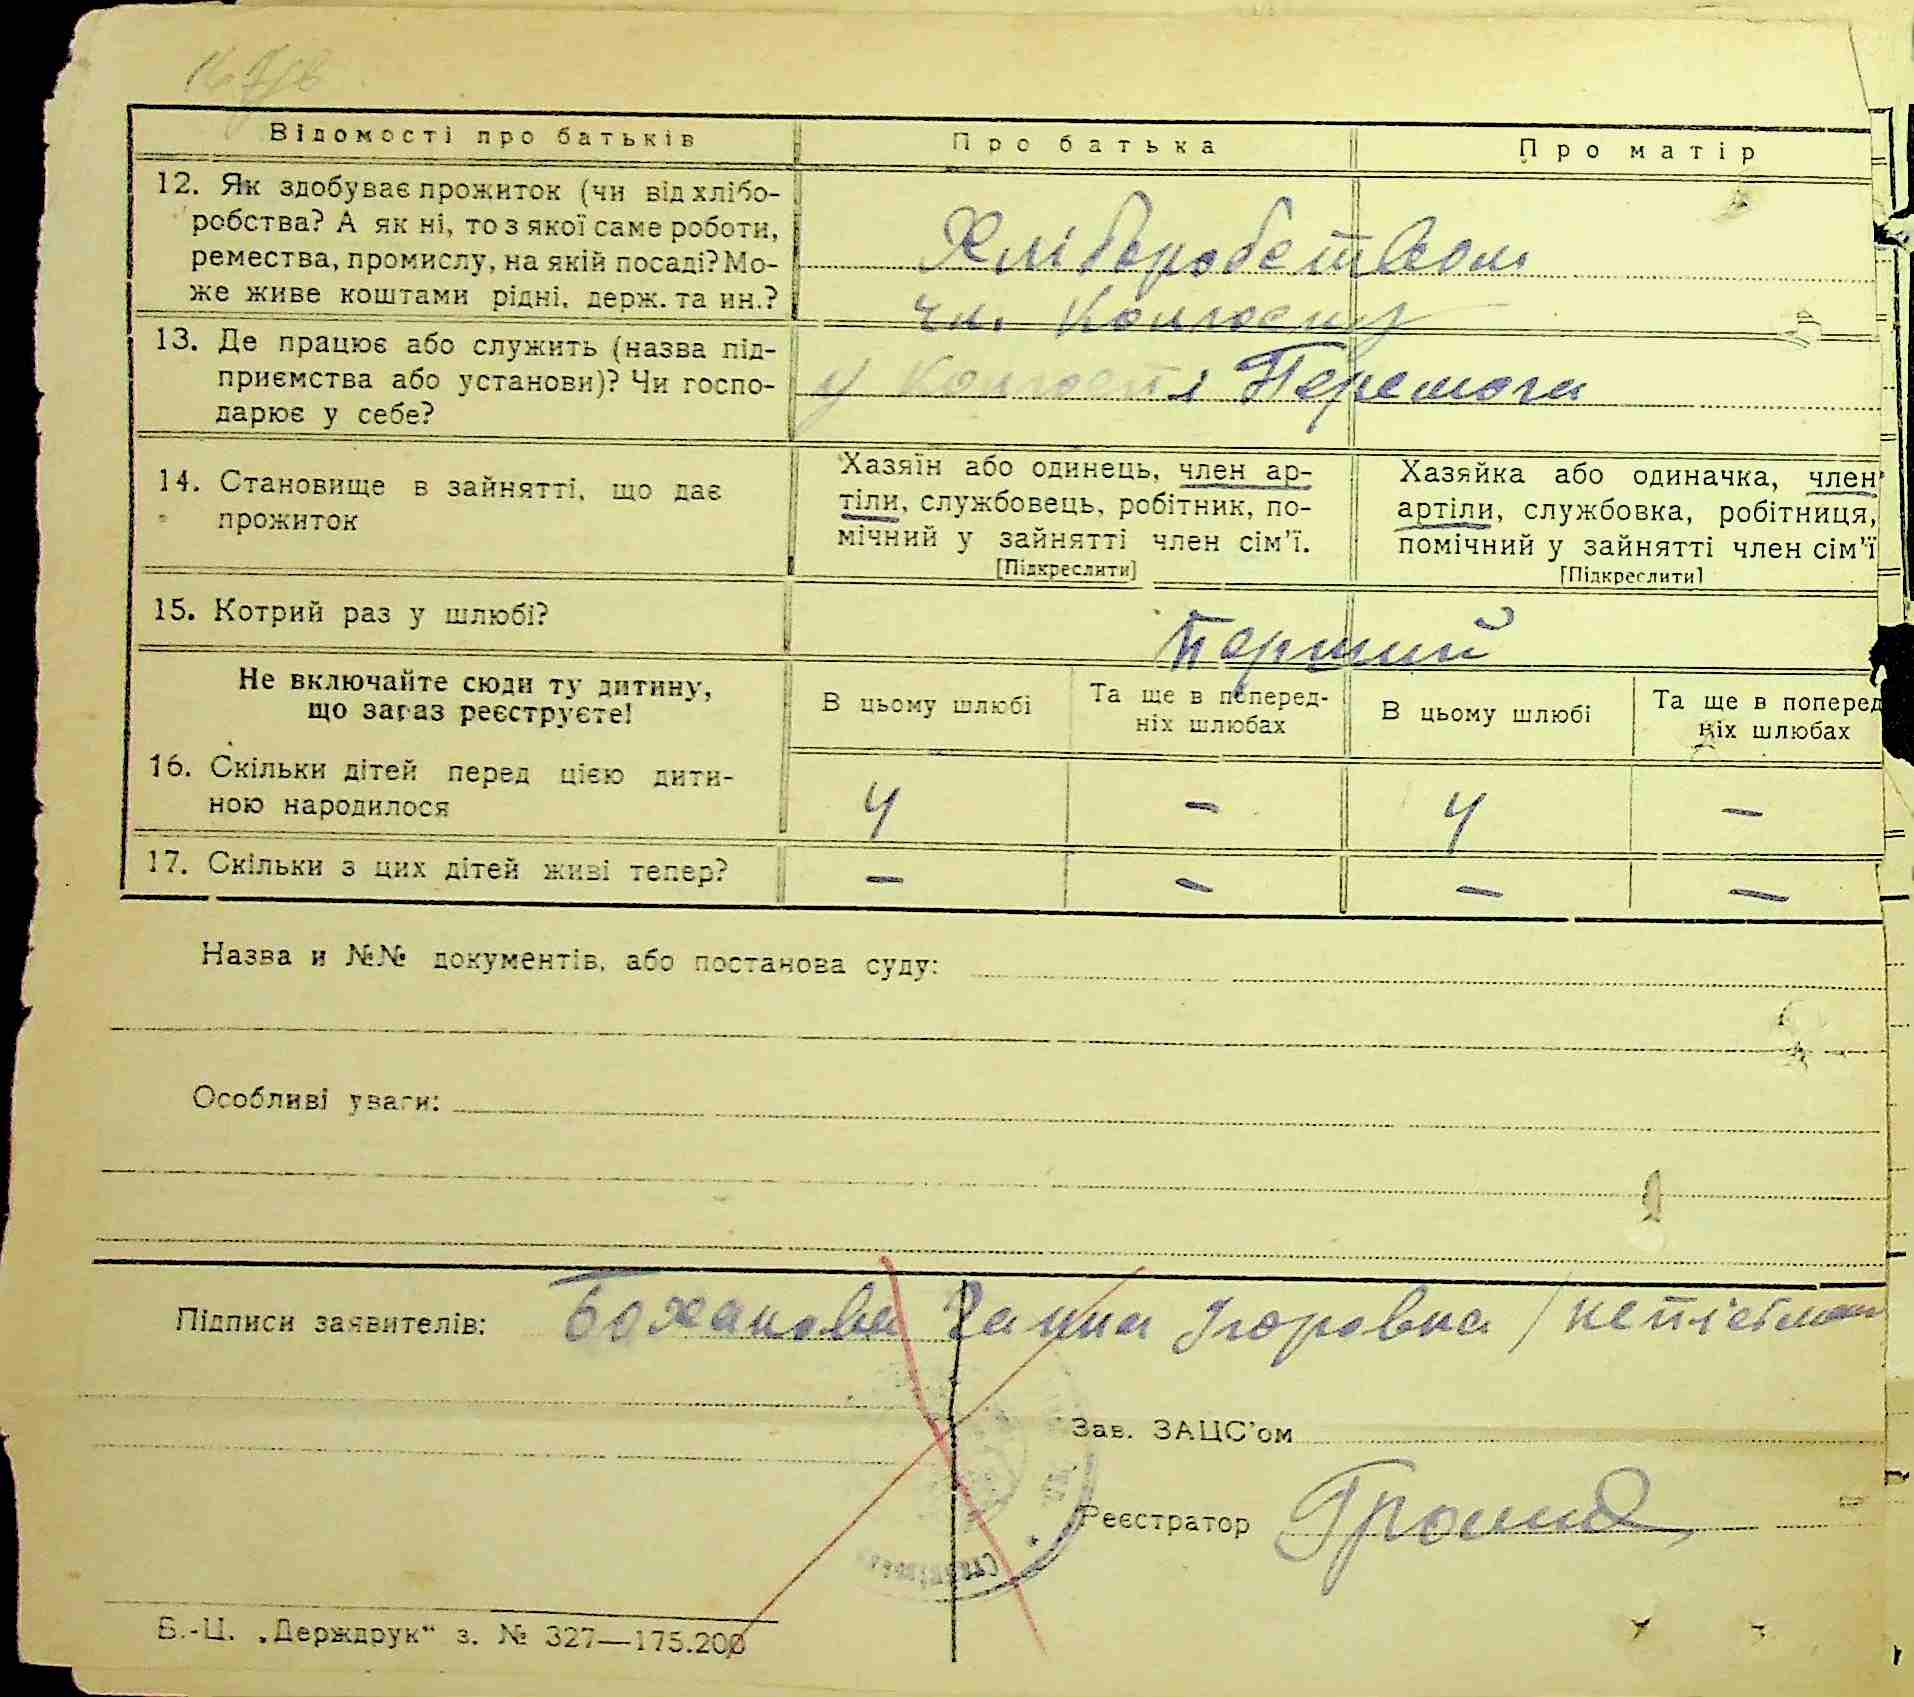 Відомості про батьків
Про батька
Про матір
12. Як здобуває прожиток (чи від хлібо-
робства? А як ні, то з якої саме роботи,
ремества, промислу, на якій посаді? Мо-
же живе коштами рідні, держ. та ин.?
Хліборобством
чл. Колгоспу
13. Де працює або служить (назва під-
приємства або установи)? Чи госпо-
дарює у себе?
у Колгоспі Перемога
14. Становище в зайнятті, що дає
прожиток
Хазяїн або одинець, член ар-
тіли, службовець, робітник, по-
мічний у зайнятті член сім'ї.
[Підкреслити]
Хазяйка або одиначка, член
артіли, службовка, робітниця,
помічний у зайнятті член сім'ї
[Підкреслити]
15. Котрий раз у шлюбі?
Перший
Не включайте сюди ту дитину,
що зараз реєструєте!
В цьому шлюбі
Та ще в поперед-
ніх шлюбах
В цьому шлюбі
Та ще в поперед
ніх шлюбах
16. Скільки дітей перед цією дити-
ною народилося
4 – 4 –
17. Скільки з цих дітей живі тепер?
– – – –
Назва и №№ документів, або постанова суду:
Особливі уваги:
Підписи заявителів: Божанова Ганна Ігоровна /
Зав. ЗАЦС'ом
Реєстратор
Б.-Ц. „Держдрук“ з. № 327—175.200